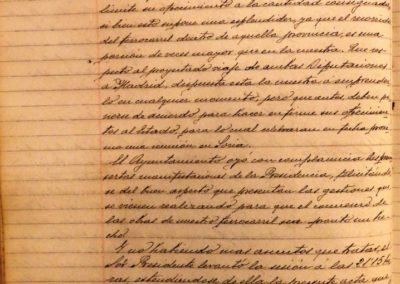 limite su ofrecimiento a la cantidad consignada,
si bien esto supone una esplendidez, ya que el recorrido
del ferrocarril dentro de aquella provincia, es una
porción de veces mayor que en la nuestra. Que res-
pecto al proyectado viaje de ambas Diputaciones
a Madrid, dispuesta esta la nuestra a emprender-
lo en cualquier momento, pero que antes, deben po-
nerse de acuerdo para hacer en firme sus ofrecimien-
tos al Estado, para lo cual celebraran en fecha proxi-
ma una reunión en Soria.
El Ayuntamiento oyó con complacencia las
manifestaciones de la Presidencia, felicitando-
se del buen aspecto que presentan las gestiones que
se vienen realizando para que el comienzo de
las obras de nuestro ferrocarril sea pronto un he-
cho.
Y no habiendo mas asuntos que tratar, el
Sor. Presidente levantó la sesión a las 21'15 ho-
ras, extendiendose de ella la presente acta que